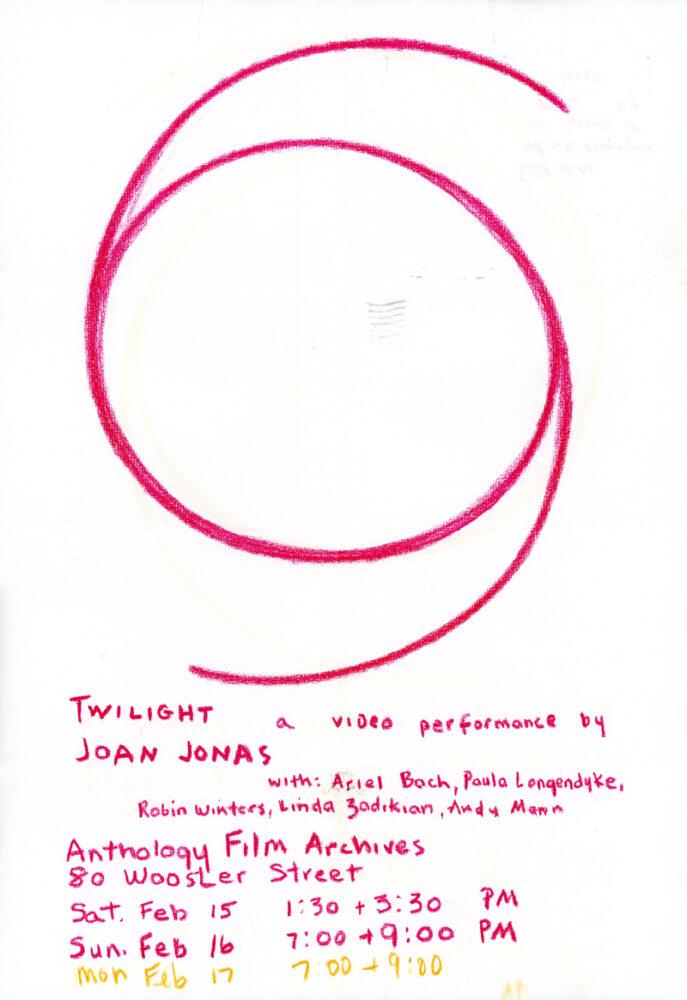 TWILIGHT a video performance by
JOAN JONAS
with: Ariel Bach, Paula Longendyke,
Robin Winters, Linda Zadikian, Andy Mann
Anthology Film Archives
80 Wooster Street
Sat. Feb 15 1:30 + 3:30 PM
Sun. Feb 16 7:00 + 9:00 PM
Mon Feb 17 7:00 + 9:00